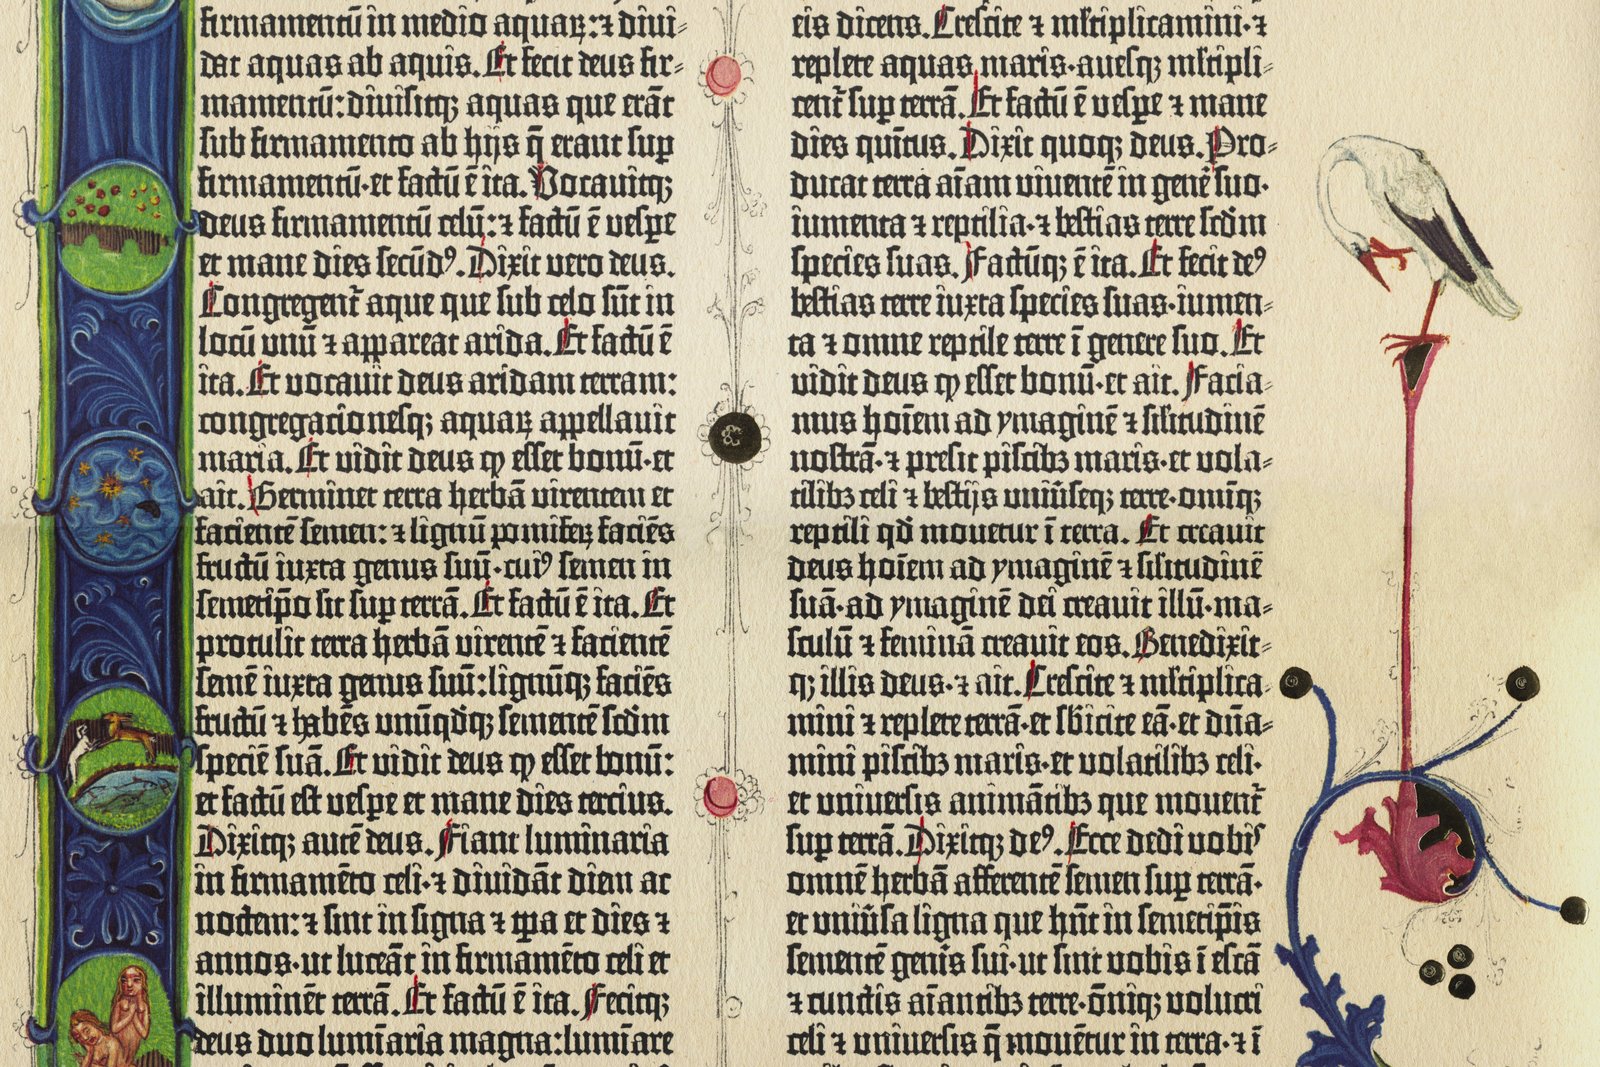 firmamentū in medio aquaꝝ: ⁊ diui⸗
dat aquas ab aquis. Et fecit deus fir⸗
mamentū: diuisitqꝫ aquas que erāt
sub firmamento ab hijs q̄ erant suꝑ
firmamentū· et factū ē ita. Vocauitqꝫ
deus firmamentū celū: ⁊ factū ē vespe
et mane dies secūdꝰ. Dixit vero deus.
Congregent̄ aque que sub celo sūt in
locū vnū ⁊ appareat arida. Et factū ē
ita. Et vocauit deus aridam terram:
congregacionesqꝫ aquaꝝ appellauit
maria. Et vidit deus ꝙ esset bonū· et
ait. Germinet terra herbā virentem et
facientē semen: ⁊ lignū pomifeꝝ faciēs
fructū iuxta genus suū· cuiꝰ semen in
semetip̄o sit suꝑ terrā. Et factū ē ita. Et
protulit terra herbā virentē ⁊ facientē
semē iuxta genus suū: lignūqꝫ faciēs
fructū ⁊ habēs unūqdqꝫ sementē scdm
speciē suā. Et vidit deus ꝙ esset bonū:
et factū est vespe et mane dies tercius.
Dixitqꝫ autē deus. Fiant luminaria
in firmamēto celi· ⁊ diuidāt diem ac
noctem: ⁊ sint in signa ⁊ tp̄a et dies ⁊
annos· ut luceāt in firmamēto celi et
illuminēt terrā. Et factū ē ita. Fecitqꝫ
deus duo lumīaria magna: lumīare
eis dicens. Crescite ⁊ ml̄tiplicamini· ⁊
replete aquas maris· auesqꝫ ml̄tipli⸗
cent̄ suꝑ terrā. Et factū ē vespe ⁊ mane
dies quītus. Dixit quoqꝫ deus. Pro⸗
ducat terra aīam viuentē in genē suo·
iumenta ⁊ reptilia· ⁊ bestias terre scdm
species suas. Factūqꝫ ē ita. Et fecit deꝰ
bestias terre iuxta species suas· iumen⸗
ta ⁊ omne reptile terre ī genere suo. Et
vidit deus ꝙ esset bonū· et ait. Facia⸗
mus hoīem ad ymaginē ⁊ sīlitudinē
nostrā· ⁊ presit piscibꝫ maris· et vola⸗
tilibꝫ celi ⁊ bestijs uniūseqꝫ terre· omīqꝫ
reptili qd̄ mouetur ī terra. Et creauit
deus hoīem ad ymaginē ⁊ sīlitudinē
suā· ad ymaginē dei creauit illū· ma⸗
sculū ⁊ feminā creauit eos. Benedixit⸗
qꝫ illis deus· ⁊ ait. Crescite ⁊ ml̄tiplica⸗
mini ⁊ replete terrā· et sb̄icite eā· et dn̄a⸗
mini piscibꝫ maris· et volatilibꝫ celi·
et uniuersis animātibꝫ que mouent̄
suꝑ terrā. Dixitqꝫ deꝰ. Ecce dedi vobis
omnē herbā afferentē semen suꝑ terrā·
et uniūsa ligna que hn̄t in semetip̄is
sementē genīs sui· ut sint vobis ī escā
⁊ cunctis aīantibꝫ terre· ōniqꝫ volucri
celi ⁊ uniuersis q̄ mouētur in terra· ⁊ ī